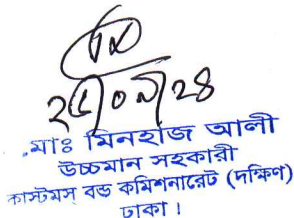 ২৫/০৯/২৪
মোঃ মিনহাজ আলী
উচ্চমান সহকারী
কাস্টমস্ বন্ড কমিশনারেট (দক্ষিণ)
ঢাকা।